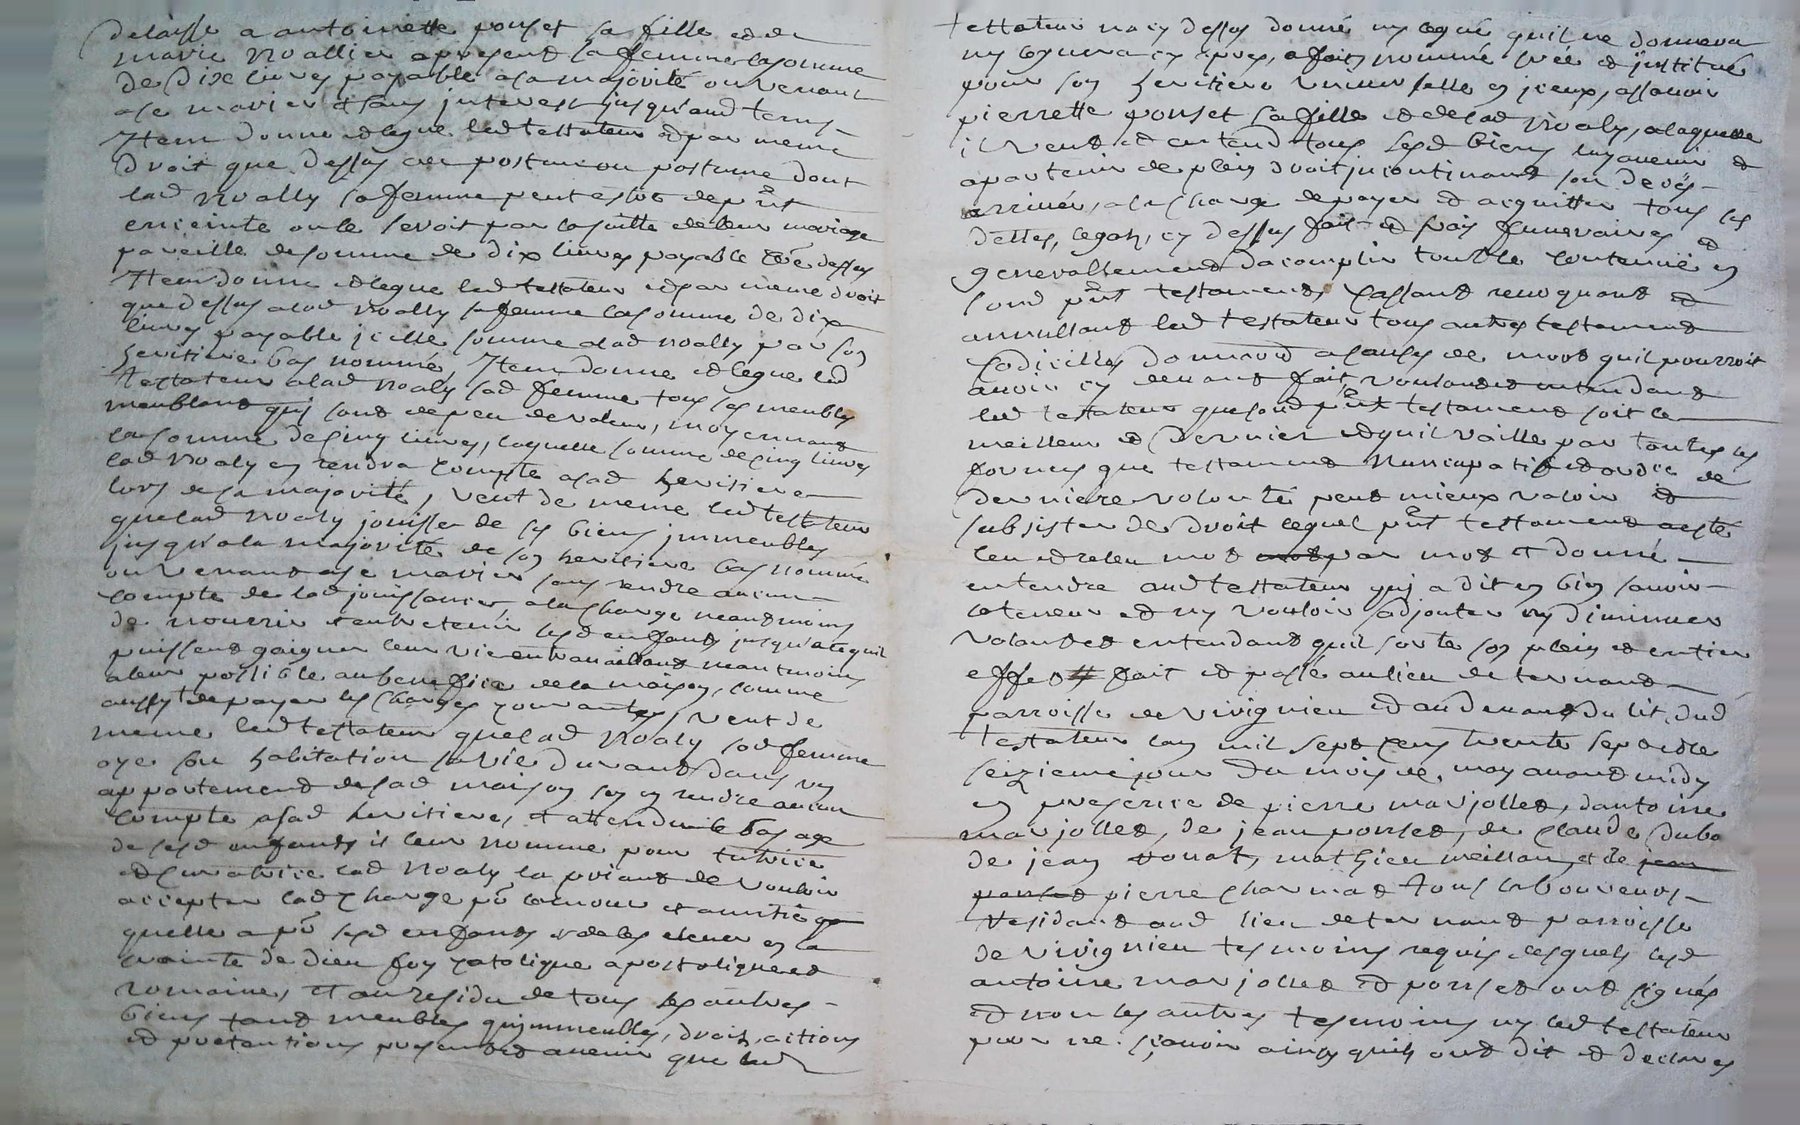 delaisse a antoinette ponset sa fille et de
marie Noallier apresent sa femme la somme
de dix livres payable a sa majorité ou venant
a se marier et sans interest jusqu'aud tems
Item donne et legue led testateur et par meme
droit que dessus au postume ou postume dont
lad Noally sa femme peut estre de pnt
enceinte ou le seroit par la suitte de leur mariage
pareille de somme de dix livres payable co[mm]e dessus
Item donne et legue led testateur et par meme droit
que dessus a lad Noally sa femme la somme de dix
livres payable icelle somme a lad Noally par son
heritiere bas nommé, Item donne et legue led
testateur a lad Noaly sad femme tous ses meubles
meublans quj sont de peu de valeur, moyennant
la somme de cinq livres, laquelle somme de cinq livres
lad Noaly en rendra compte a sad heritiere
lors de sa majorité, veut de meme led testateur
que lad Noaly jouisse de ses biens jmmeubles
jusqu'a la majorité de son heritiere bas nommé
ou venant a se marier sans rendre aucun
compte de lad jouissance, a la charge neantmoins
de nourrir et entretenir lesd enfants jusqu'a ce quil
puissent gaigner leur vie en travaillant neantmoins
a leur possible au benefice de la maison, comme
aussy de payer les charges courantes, veut de
meme led testateur que lad Noaly sad femme
aye son habitation sa vie durant dans un
appartement de sad maison sen en rendre aucun
compte a sad heritiere, et attendu le bas age
de sesd enfants il leur nomme pour tutrice
et curatrice lad Noaly la priant de vouloir
accepter lad charge pr lamour et amitié
quelle a pr sesd enfants et de les elever en la
crainte de dieu foy catolique apostolique et
romaine, et au residu de tous ses autres
biens tant meubles qujmmeubles, droits, actions
et pretentions presents et avenir que led
testateur na cy dessus donné ny legué quil ne donnera
ny leguera cy apres, a fait, nommé créé et jnstitué
pour son heritiere universelle en jceux, assavoir
pierrette ponset sa fille et de lad Noaly, a laquelle
il veut et entend tous sesd biens luy avenir et
apartenir de plein droit jncontinant son decés
arrivée, a la charge de payer et acquitter tous ses
dettes, legats, cy dessus fait et frais funeraires et
generallement dacomplir tout le contenu en
sond pnt testament, Cassant revoquant et
annullant led testateur tous autres testament
Codicilles donnation a cause de mort quil pourroit
avoir cy devant fait, voulant et entendant
led testateur que sond pnt testament soit le
meilleur et dernier et quil vaille par toutes les
formes que testament Nuncupatif et ordre de
derniere volonté peut mieux valoir et
subsister de droit lequel pnt testament a esté
leu et releu mot par mot et donné
entendre aud testateur quj a dit en bien savoir
la teneur et ny vouloir adjouter ny diminuer
voulant et entendant quil sorte son plein et entier
effet fait et passé au lieu de ternand
parroisse de vivignieu et au devant du lit dud
testateur lan mil sept cens trente sept et le
seizieme jour du mois de may avant midy
en presence de pierre marjollet, dantoine
marjollet, de jean ponset, de claude dubo
de jean vonat, mathieu meillan, et de jean
ponset pierre charmat tous laboureurs
residant aud lieu de ternand parroisse
de vivignieu tesmoins requis lesquels lesd
antoine marjollet et ponset ont signés
et non les autres tesmoins ny led testateur
pour ne sçavoir ainsy quils ont dit et declares